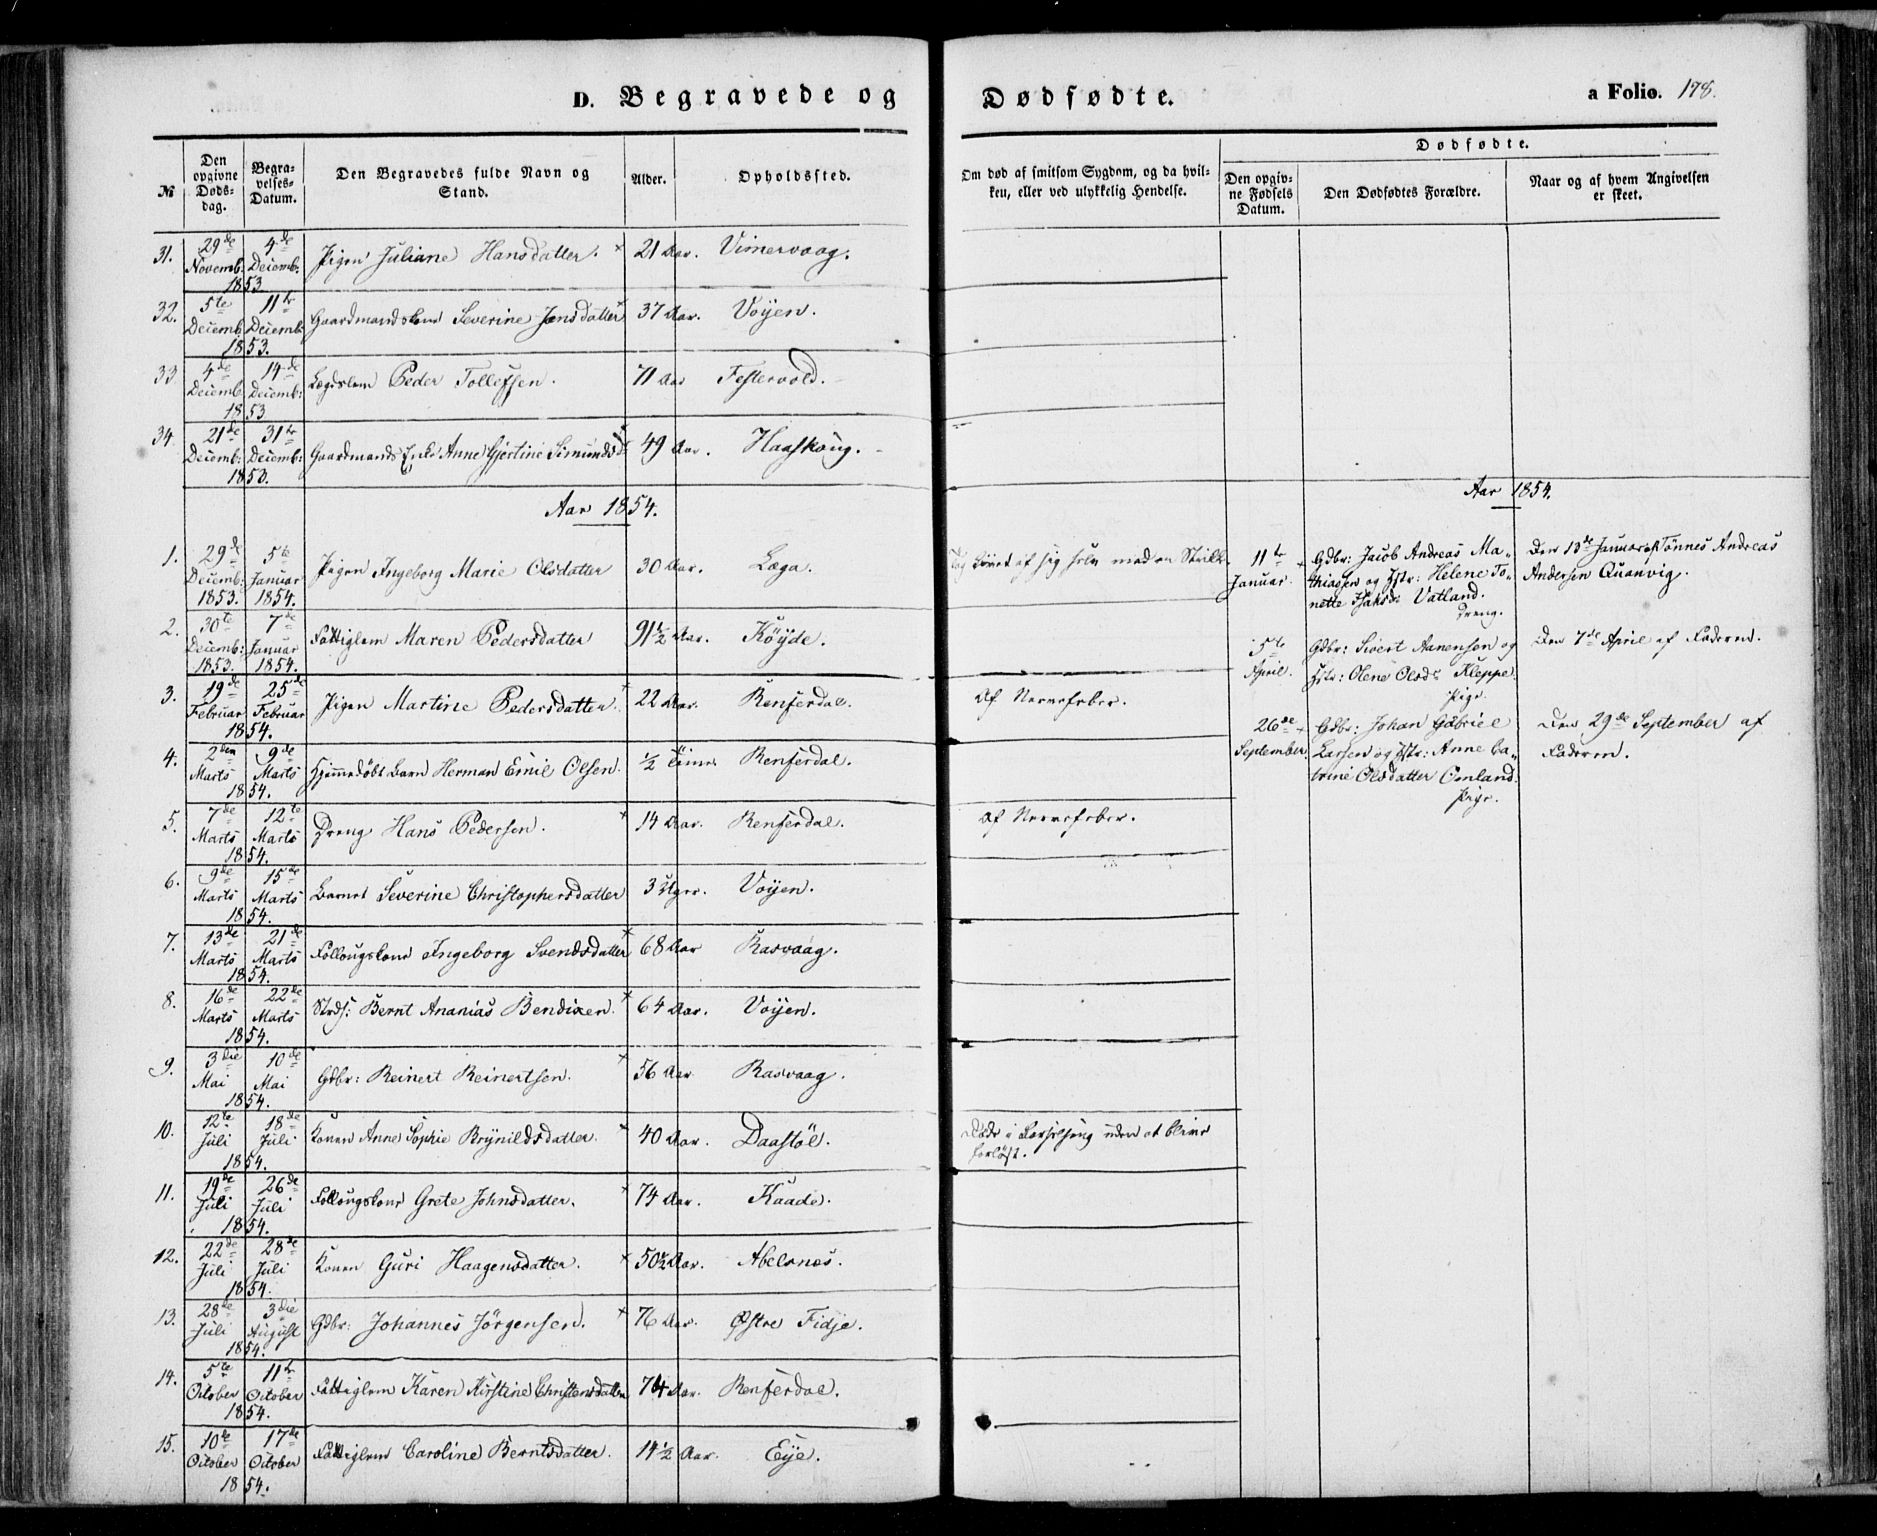 D. Begravede og Dødfødte.
a Folio. 178.
№
Den opgivne Døds-dag.
Begra-velses-Datum.
Den Begravedes fulde Navn og Stand.
Alder.
Opholdssted.
Om død af smitsom Sygdom, og da hvil-
ken, eller ved ulykkelig Hendelse.
Dødfødte.
Den opgiv-ne Fødsels Datum.
Den Dødfødtes Forældre.
Naar og af hvem Angivelsen er skeet.
31. 29de Novemb: 4de Decemb. 1853 Pigen Juliane Hansdatter. 21 Aar. Vimervaag.
32. 5te Decemb. 11te Decemb. 1853. Gaardmandskone Severine Jensdatter 37 Aar. Vöyen.
33 4de Decemb. 14de Decemb: 1853 Lægdslem Peder Tollefsen. 71 Aar Festervold.
34. 21de Decemb: 31te Decemb: 1853. Gaardmands Enke Anne Gjertine Simundsd: 49 Aar. Haaskoug.
Aar 1854.
1. 29de Decemb: 1853. 5te Januar 1854. Pigen Ingeborg Marie Olsdatter 30 Aar. Læga. Tog Livet af sig selv med en Strikke
2. 30te Decemb: 1853. 7de Januar 1854. Fattiglem Maren Pedersdatter 91½ Aar. Köyde.
3. 19de Februar 25de Februar 1854. Pigen Martine Pedersdatter. 22 Aar. Renferdal. Af Nervefeber.
4. 2den Marts 9de Marts 1854. Hjemmedöbt Barn Herman Emil Olsen. ½ Time Renferdal.
5. 7de Marts 12te Marts 1854. Dreng Hans Pedersen. 14 Aar. Renferdal. Af Nervefeber.
6. 9de Marts 15de Marts 1854. Barnet Severine Christophersdatter 3 Uger. Voÿen.
7. 13de Marts 21de Marts 1854. Follougskone Ingeborg Svendsdatter 68 Aar Rasvaag.
8. 16de Marts 22de Marts 1854. Strds: Bernt Ananias Bendixen. 64 Aar. Voÿen.
9. 3die Mai 10de Mai 1854. Gdbr: Reinert Reinertsen. 56 Aar Rasvaag.
10. 12te Juli 18de Juli 1854. Konen Anne Sophie Brynildsdatter. 40 Aar. Daastöl. Döde i Barselseng uden at blive
forlöst.
11. 19de Juli 26de Juli 1854. Follougskone Grete Johnsdatter. 74 Aar. Kaade.
12. 22de Juli 28de Juli 1854. Konen Guri Haagensdatter. 50½ Aar. Abelsnes.
13. 28de Juli 3die August 1854. Gdbr: Johannes Jörgensen. 76 Aar. Østre Fidje.
14. 5te October 11te October 1854. Fattiglem Karen Kirstine Christensdatter 74 Aar. Renferdal.
15. 10de October 17de October 1854. Fattiglem Caroline Berntsdatter. 14½ Aar. Eye.
Aar 1854.
11te Januar. Gdbr: Jacob Andreas Ma-
thiasen og Hstr: Helene To-
nette Isaksdr Vatland.
Dreng.
Den 13de Januar af Tönnes Andreas
Andersen Quanvig.
5te April. Gdbr: Sivert Aanensen og
Hstr: Olene Olsdr Kleppe.
Pige.
Den 7de April af Faderen.
26de September. Gdbr: Johan Gabriel
Larsen og Hstr: Anne Ca-
trine Olsdatter Omland.
Pige.
Den 29de September af
Faderen.